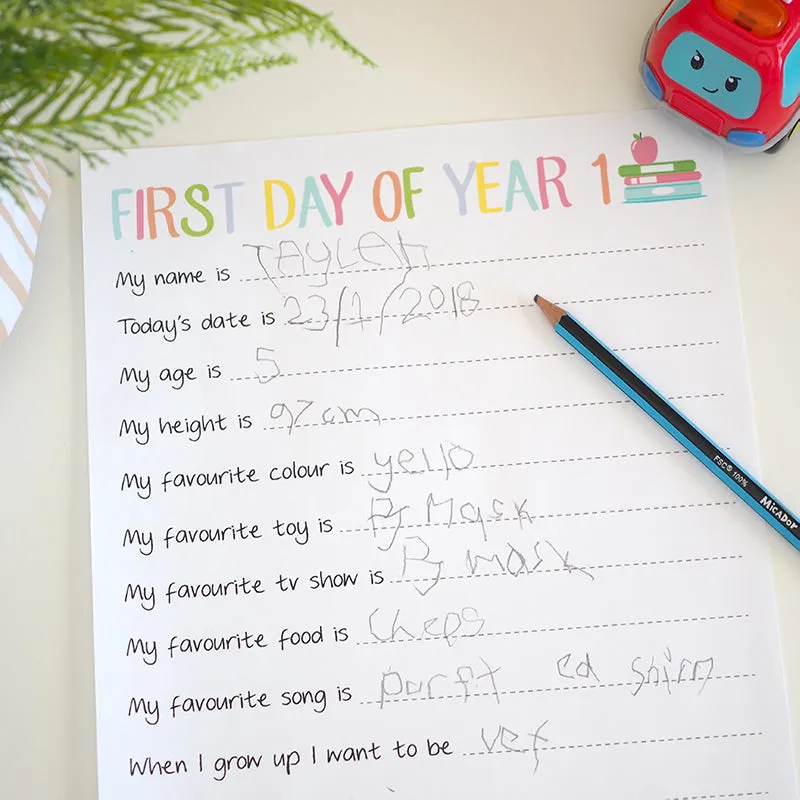 FIRST DAY OF YEAR 1
My name is TAYLAH
Today's date is 23/1/2018
My age is 5
My height is 97cm
My favourite colour is yello
My favourite toy is Pj Mask
My favourite tv show is Pj mask
My favourite food is Cheps
My favourite song is purfit ed shirn
When I grow up I want to be vet
FSC® 100% MICADOR